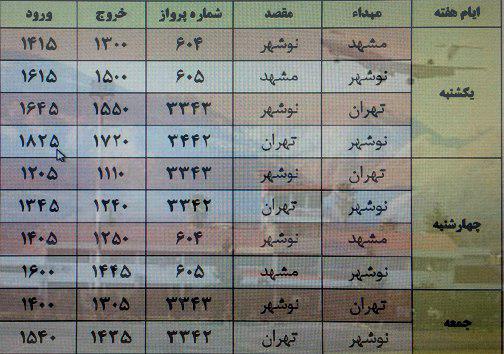 ایام هفته مبداء مقصد شماره پرواز خروج ورود
یکشنبه
مشهد نوشهر ۶۰۴ ۱۳۰۰ ۱۴۱۵
نوشهر مشهد ۶۰۵ ۱۵۰۰ ۱۶۱۵
تهران نوشهر ۳۳۴۳ ۱۵۵۰ ۱۶۴۵
نوشهر تهران ۳۴۴۲ ۱۷۲۰ ۱۸۲۵
چهارشنبه
تهران نوشهر ۳۳۴۳ ۱۱۱۰ ۱۲۰۵
نوشهر تهران ۳۳۴۲ ۱۲۴۰ ۱۳۴۵
مشهد نوشهر ۶۰۴ ۱۲۵۰ ۱۴۰۵
نوشهر مشهد ۶۰۵ ۱۴۴۵ ۱۶۰۰
جمعه
تهران نوشهر ۳۳۴۳ ۱۳۰۵ ۱۴۰۰
نوشهر تهران ۳۳۴۲ ۱۴۳۵ ۱۵۴۰